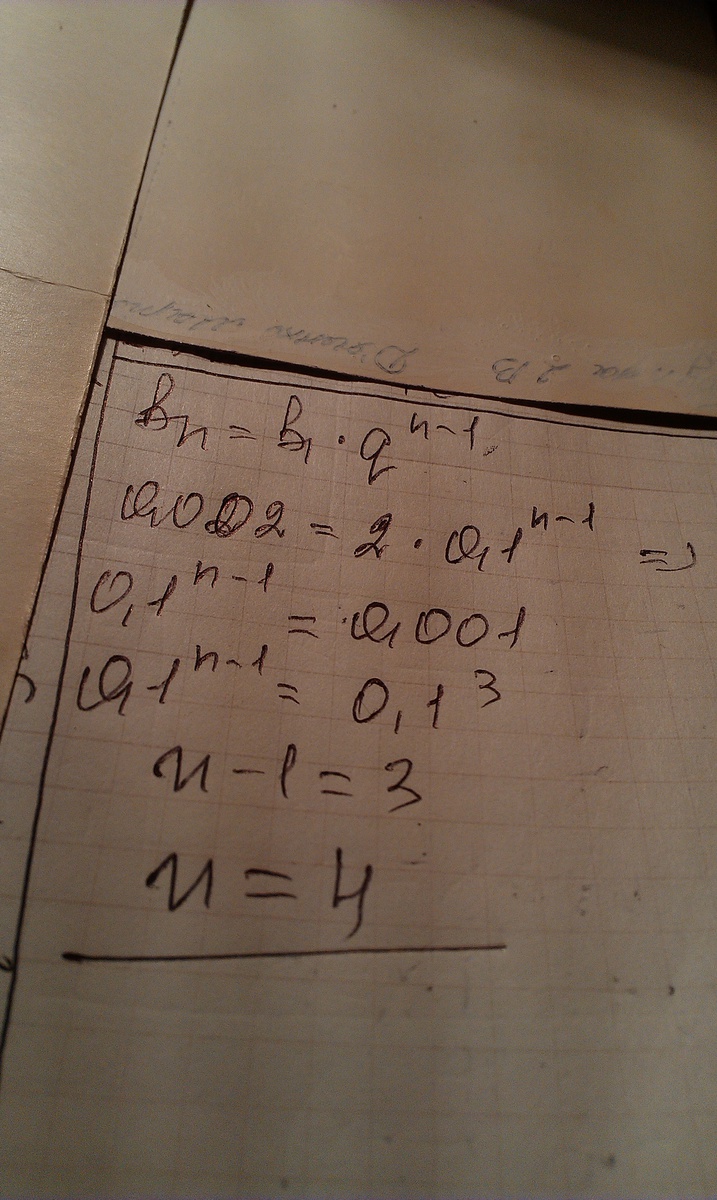 bn = b₁ · q^(n-1)
0,002 = 2 · 0,1^(n-1) =>
0,1^(n-1) = 0,001
0,1^(n-1) = 0,1^3
n-1=3
n=4